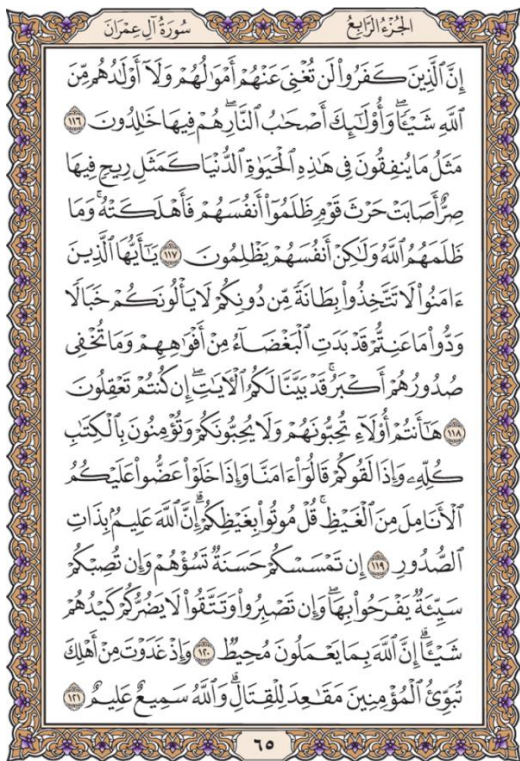 سُورَةُ آلِ عِمْرَانَ
الجُزْءُ الرَّابِعُ
إِنَّ ٱلَّذِينَ كَفَرُواْ لَن تُغْنِيَ عَنْهُمْ أَمْوَٰلُهُمْ وَلَآ أَوْلَٰدُهُم مِّنَ
ٱللَّهِ شَيْـًٔا ۖ وَأُوْلَٰٓئِكَ أَصْحَٰبُ ٱلنَّارِ ۖ هُمْ فِيهَا خَٰلِدُونَ ١١٦
مَثَلُ مَا يُنفِقُونَ فِي هَٰذِهِ ٱلْحَيَوٰةِ ٱلدُّنْيَا كَمَثَلِ رِيحٍ فِيهَا
صِرٌّ أَصَابَتْ حَرْثَ قَوْمٍ ظَلَمُوٓاْ أَنفُسَهُمْ فَأَهْلَكَتْهُ ۚ وَمَا
ظَلَمَهُمُ ٱللَّهُ وَلَٰكِنْ أَنفُسَهُمْ يَظْلِمُونَ ١١٧ يَٰٓأَيُّهَا ٱلَّذِينَ
ءَامَنُواْ لَا تَتَّخِذُواْ بِطَانَةً مِّن دُونِكُمْ لَا يَأْلُونَكُمْ خَبَالًا
وَدُّواْ مَا عَنِتُّمْ قَدْ بَدَتِ ٱلْبَغْضَآءُ مِنْ أَفْوَٰهِهِمْ وَمَا تُخْفِي
صُدُورُهُمْ أَكْبَرُ ۚ قَدْ بَيَّنَّا لَكُمُ ٱلْأٓيَٰتِ ۖ إِن كُنتُمْ تَعْقِلُونَ
١١٨ هَٰٓأَنتُمْ أُوْلَآءِ تُحِبُّونَهُمْ وَلَا يُحِبُّونَكُمْ وَتُؤْمِنُونَ بِٱلْكِتَٰبِ
كُلِّهِۦ وَإِذَا لَقُوكُمْ قَالُوٓاْ ءَامَنَّا وَإِذَا خَلَوْاْ عَضُّواْ عَلَيْكُمُ
ٱلْأَنَامِلَ مِنَ ٱلْغَيْظِ ۚ قُلْ مُوتُواْ بِغَيْظِكُمْ ۗ إِنَّ ٱللَّهَ عَلِيمٌۢ بِذَاتِ
ٱلصُّدُورِ ١١٩ إِن تَمْسَسْكُمْ حَسَنَةٌ تَسُؤْهُمْ وَإِن تُصِبْكُمْ
سَيِّئَةٌ يَفْرَحُواْ بِهَا ۖ وَإِن تَصْبِرُواْ وَتَتَّقُواْ لَا يَضُرُّكُمْ كَيْدُهُمْ
شَيْـًٔا ۗ إِنَّ ٱللَّهَ بِمَا يَعْمَلُونَ مُحِيطٌ ١٢٠ وَإِذْ غَدَوْتَ مِنْ أَهْلِكَ
تُبَوِّئُ ٱلْمُؤْمِنِينَ مَقَٰعِدَ لِلْقِتَالِ ۗ وَٱللَّهُ سَمِيعٌ عَلِيمٌ ١٢١
٦٥